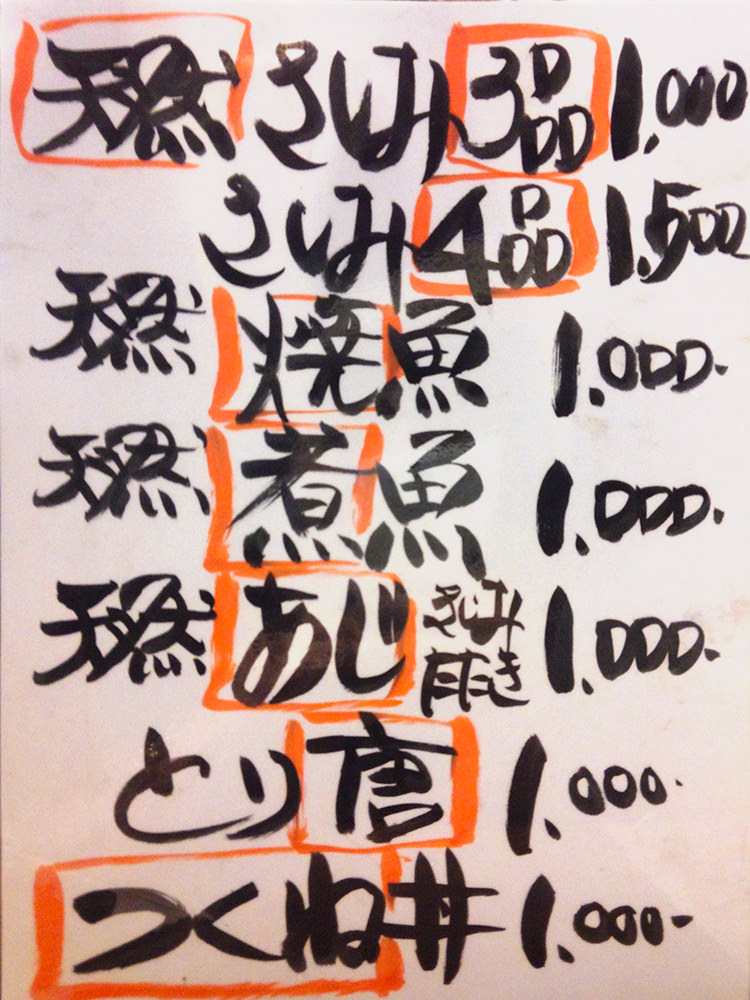 天然 さしみ 3品 1,000
さしみ 4品 1,500
天然 焼魚 1,000.
天然 煮魚 1,000.
天然 あじ さしみ 1,000.
とり唐 1,000.
つくね丼 1,000-